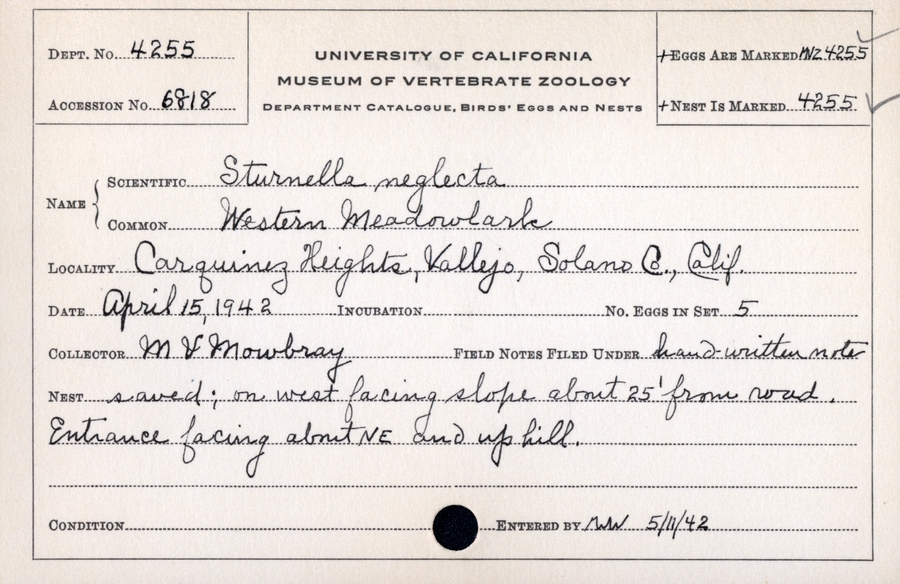 DEPT. No. 4255
ACCESSION No. 6818
UNIVERSITY OF CALIFORNIA
MUSEUM OF VERTEBRATE ZOOLOGY
DEPARTMENT CATALOGUE, BIRDS' EGGS AND NESTS
+EGGS ARE MARKED MVZ 4255
+NEST IS MARKED 4255
NAME
SCIENTIFIC Sturnella neglecta
COMMON Western Meadowlark
LOCALITY Carquinez Heights, Vallejo, Solano Co., Calif.
DATE April 15, 1942 INCUBATION No. EGGS IN SET 5
COLLECTOR M V Mowbray FIELD NOTES FILED UNDER hand-written note
NEST saved; on west facing slope about 25' from road.
Entrance facing about NE and up hill.
CONDITION ENTERED BY 5/11/42